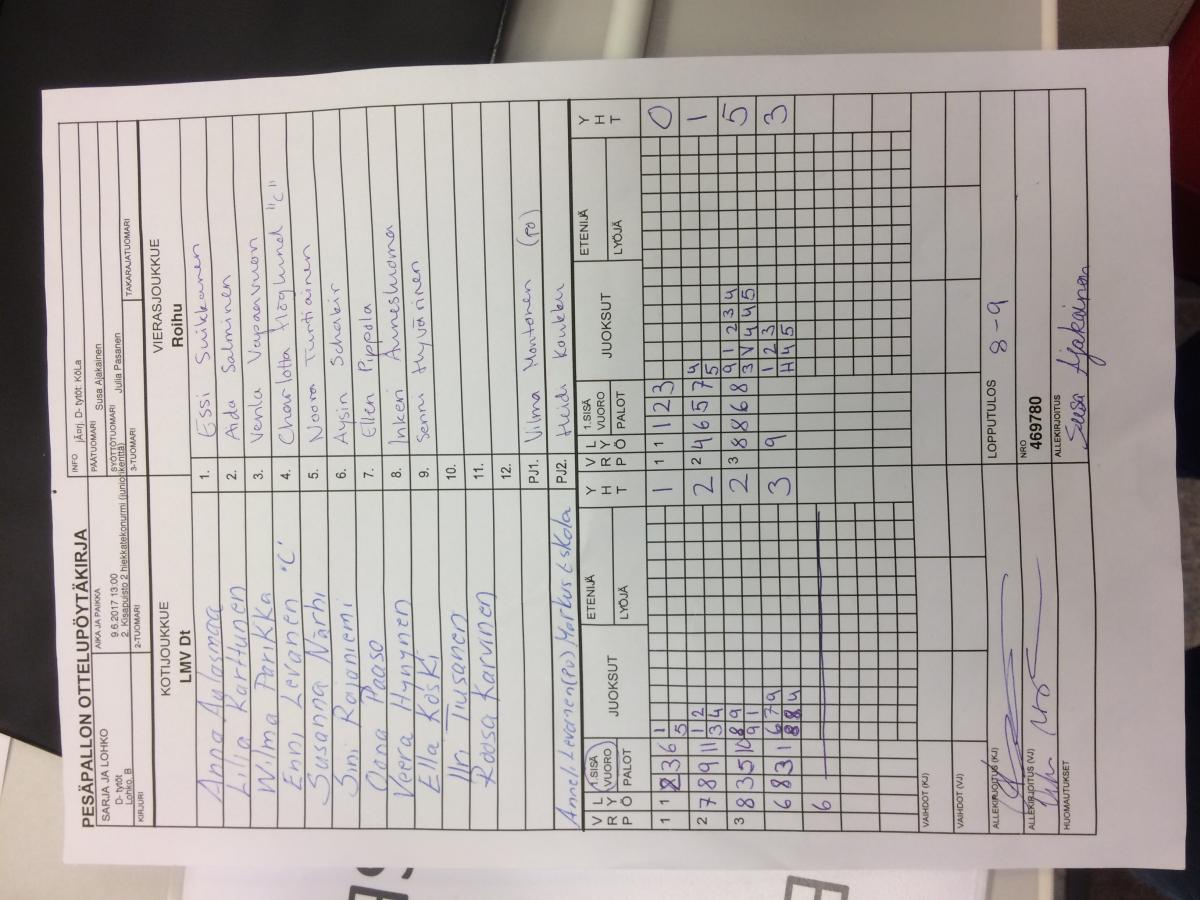 PESÄPALLON OTTELUPÖYTÄKIRJA
SARJA JA LOHKO
D- tytöt
Lohko. B
AIKA JA PAIKKA
9.6.2017 13:00
2. Kisapuisto 2 hiekkatekonurmi (juniorikenttä)
INFO jÃ¤rj. D- tytöt: KöLa
PÄÄTUOMARI Susa Ajakainen
SYÖTTÖTUOMARI Julia Pasanen
KIRJURI 2-TUOMARI 3-TUOMARI TAKARAJATUOMARI
KOTIJOUKKUE VIERASJOUKKUE
LMV Dt Roihu
Anna Aylasmaa 1. Essi Suikkanen
Lilia Karttunen 2. Aida Salminen
Wilma Parikka 3. Venla Vapaavuori
Enni Levanen "C" 4. Charlotta Höoghund "C"
Susanna Närhi 5. Noora Turtiainen
Sini Rajaniemi 6. Aysin Schakir
Oona Paaso 7. Ellen Pippola
Veera Hynynen 8. Inkeri Annesluoma
Ella Koski 9. Senni Hyvärinen
Iiri Tiusanen 10.
Roosa Karvinen 11.
12.
PJ1. Vilma Montonen (PO)
Anne Levanen (PV) Markus Eskola PJ2. Heidi Koukku
V R P L Y Ö 1.SISÄ VUORO PALOT JUOKSUT ETENIJÄ LYÖJÄ Y H T V R P L Y Ö 1.SISÄ VUORO PALOT JUOKSUT ETENIJÄ LYÖJÄ Y H T
1 1 8 3 6 1 5 1 1 1 1 2 3 0
2 7 8 9 11 1 2 3 4 2 2 4 6 5 7 4 5 1
3 8 3 5 10 8 9 9 1 2 3 8 8 6 8 9 1 2 3 4 3 V 4 4 5 5
6 8 3 1 6 7 9 8 8 4 3 9 1 2 3 H 4 5 3
6
VAIHDOT (KJ)
VAIHDOT (VJ)
ALLEKIRJOITUS (KJ) LOPPUTULOS 8-9
ALLEKIRJOITUS (VJ) NRO 469780
HUOMAUTUKSET ALLEKIRJOITUS Susa Ajakainen